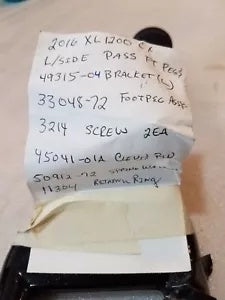 2016 XL1200 CX
L/SIDE PASS FT PEGS
49315-04 BRACKET (L)
33048-72 FOOTPEG ASSY
3214 SCREW 2EA
45041-01A CLEVIS PIN
50912-72 SPRING
11304 RETAIN RING